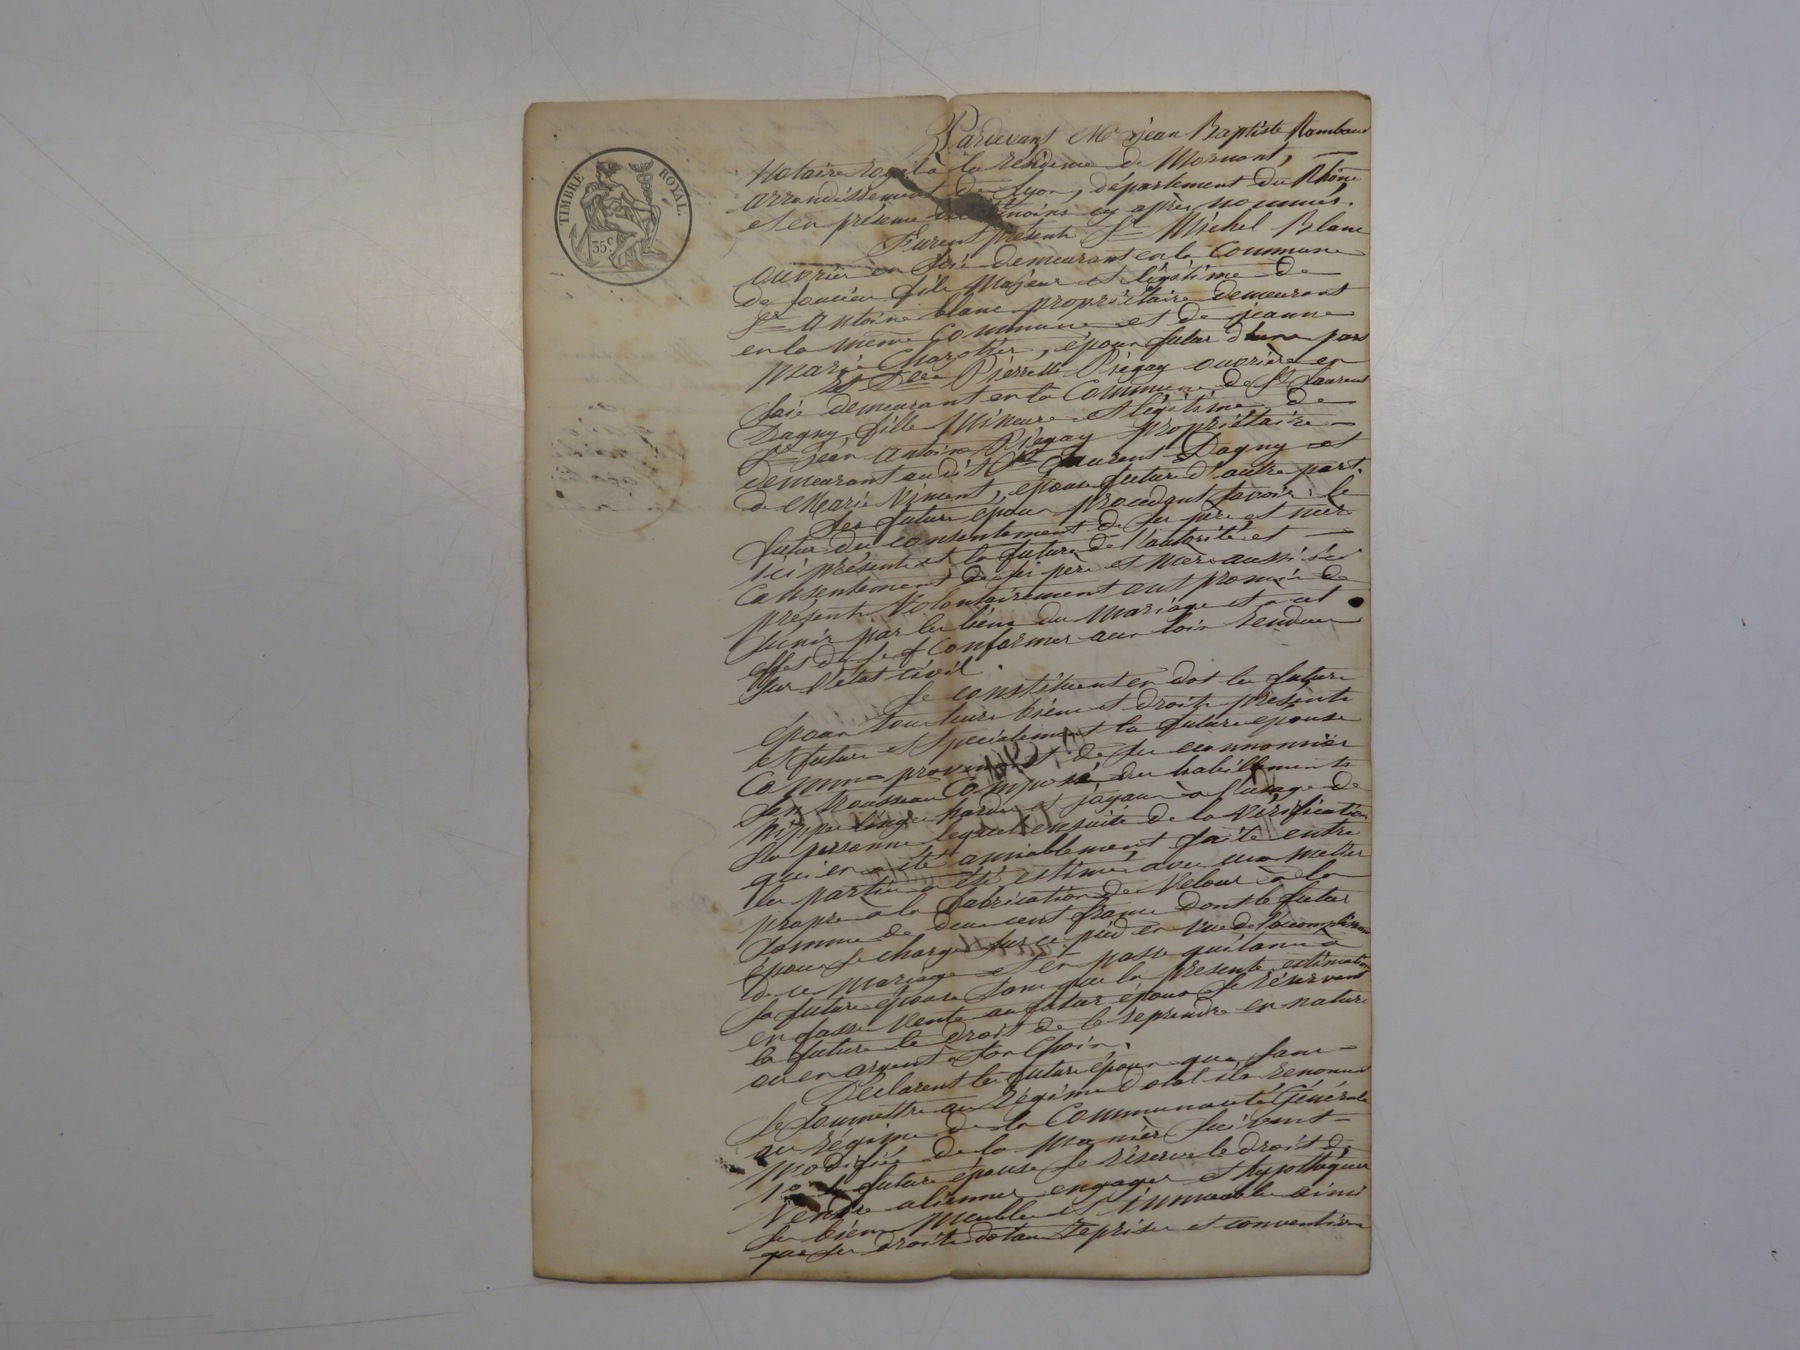 TIMBRE ROYAL.
35c.
Pardevant Me jean Baptiste Rambaud
Notaire royal à la résidence de Mornant,
arrondissement de Lyon, département du Rhône
et en présence des témoins cy après nommés.
Furent présents Sr Michel Blanc
ouvrier en soie demeurant en la Commune
de Soucieu fils Majeur et légitime de
Sr Antoine blanc propriétaire demeurant
en la meme Commune et de jeanne
marie Charotier, époux futur d'une part
Et Dlle Pierrette Piégay ouvrière en
soie demeurant en la Commune de St Laurent
Dagny, fille Mineure et légitime de
Sr jean Antoine Piégay propriétaire
demeurant audit St Laurent Dagny et
de Marie Vincent, epouse future d'autre part.
Les futurs epoux procedant savoir : le
futur du consentement de ses père et mère
ici présents et la future de l'autorité et
consentement de ses père et mère aussi ici
présents Volontairement ont promis de
s'unir par les liens du Mariage et a cet
effet de se conformer aux lois rendues
sur l'état civil
Se constituent en dot les futurs
époux tous leurs biens et droits présents
et futurs et specialement la future epouse
Comme provenant de ses économies
son trousseau Composé des habillements
nippes linges hardes et joyaux à l'usage de
sa personne lequel ensuite de la Vérification
qui en a été amiablement faite entre
les parties a été estimé avec un metier
propre a la fabrication de Velour à la
somme de deux cent francs dont le futur
époux se charge sur ce pied en vue de l'accomplissement
de ce mariage et en passe quittance a
sa future épouse sans que la présente estimation
en fasse Vente au futur époux se réservant
la future le droit de le reprendre en nature
ou en argent a son Choix.
Déclarent les futurs époux que sans
se soumettre au Régime dotal ils renoncent
au régime de la Communauté Générale
modifiée de la manière suivante
1º La future épouse se réserve le droit de
Vendre aliéner engager et hypothéquer
ses biens meubles et immeubles ainsi
que ses droits dotaux reprises et conventions